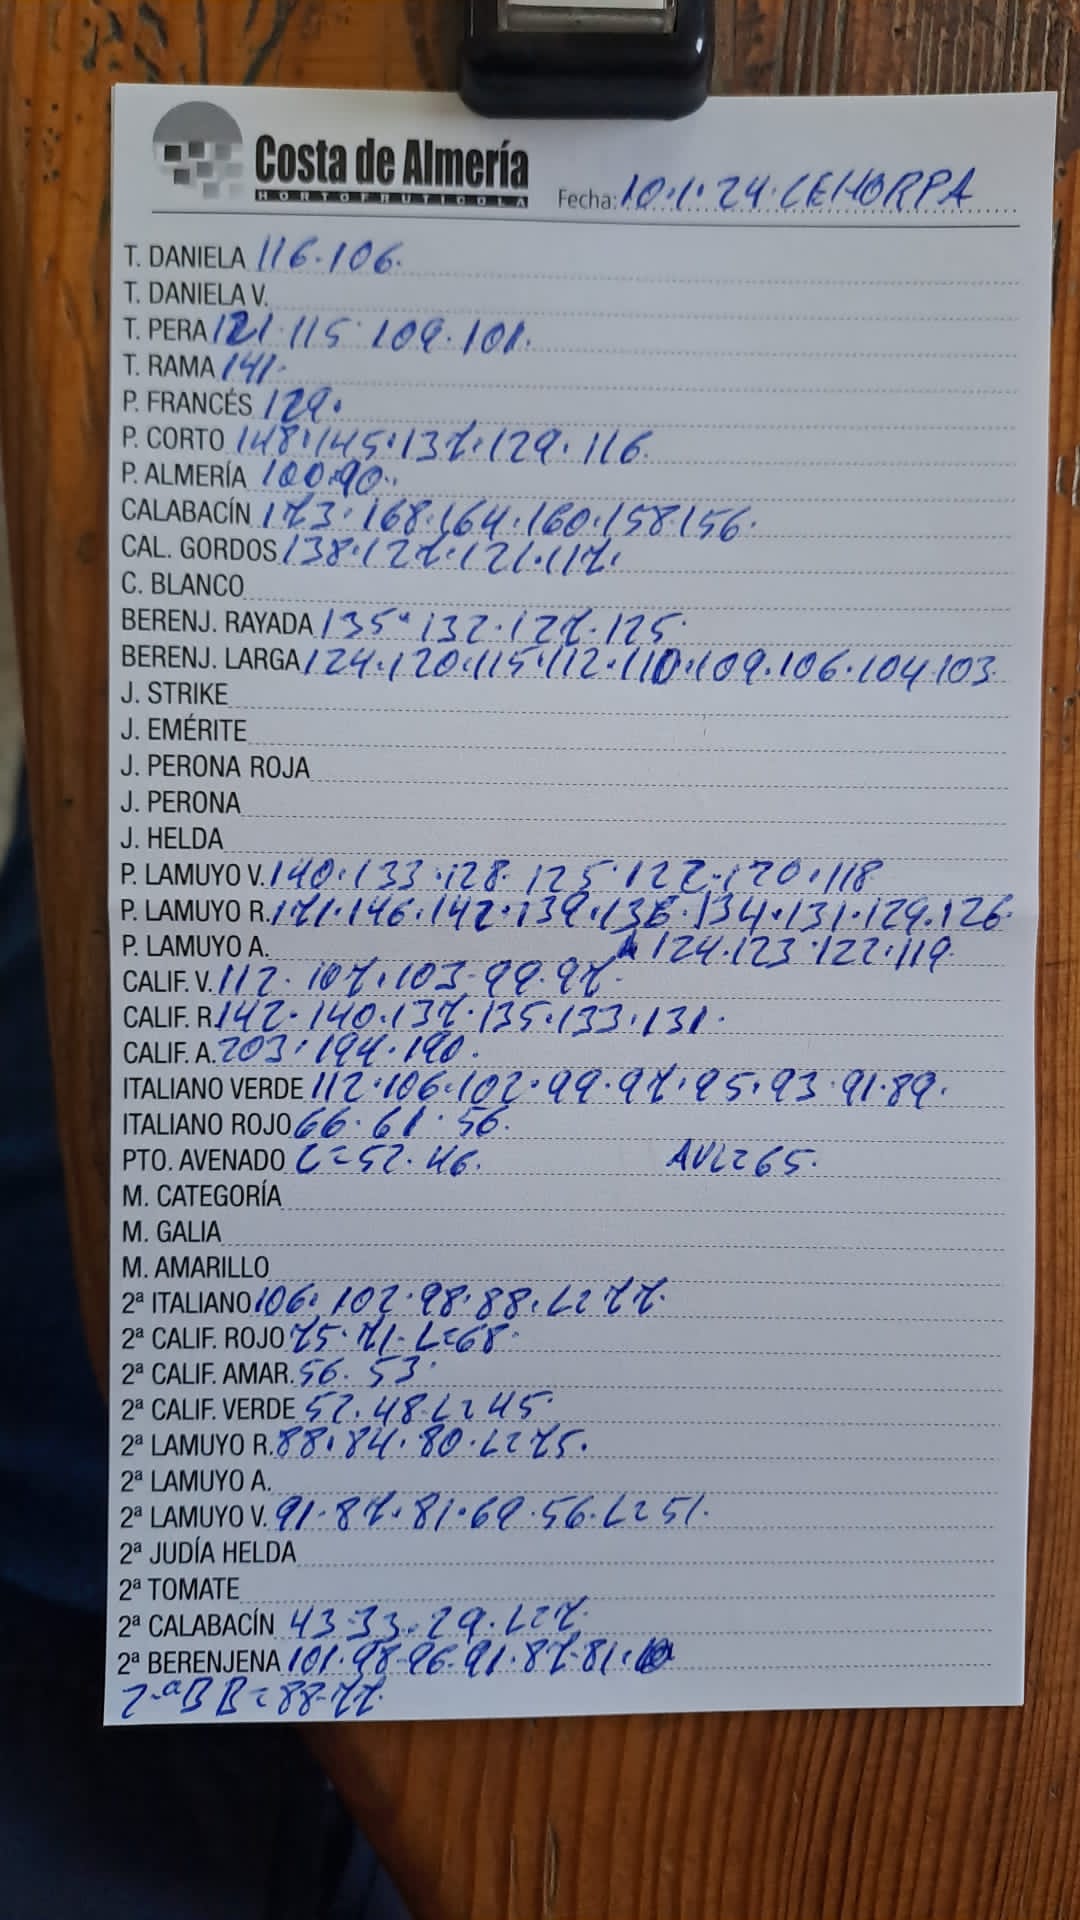 Costa de Almería
HORTOFRUTICOLA
Fecha: 10.1.24.CEHORPA
T. DANIELA 116.106.
T. DANIELA V.
T. PERA 121.115 109.101.
T. RAMA 141.
P. FRANCÉS 129.
P. CORTO 148.145.137.129.116.
P. ALMERÍA 100.90.
CALABACÍN 173.168.164.160.158.156.
CAL. GORDOS 138.127.121.117.
C. BLANCO
BERENJ. RAYADA 135.132.127.125.
BERENJ. LARGA 124.120.115.112.110.109.106.104.103.
J. STRIKE
J. EMÉRITE
J. PERONA ROJA
J. PERONA
J. HELDA
P. LAMUYO V. 140.133.128.125.122.120.118
P. LAMUYO R. 171.146.142.139.136.134.131.129.126.
P. LAMUYO A. 124.123.122.119.
CALIF. V. 112.107.103.99.97.
CALIF. R. 142.140.137.135.133.131.
CALIF. A. 203.194.190.
ITALIANO VERDE 112.106.102.99.97.95.93.91.89.
ITALIANO ROJO 66.61.56.
PTO. AVENADO C=52.46. AVL=65.
M. CATEGORÍA
M. GALIA
M. AMARILLO
2ª ITALIANO 106.102.98.88.L=77.
2ª CALIF. ROJO 75.71.L=68.
2ª CALIF. AMAR. 56.53.
2ª CALIF. VERDE 52.48.L=45.
2ª LAMUYO R. 88.84.80.L=75.
2ª LAMUYO A.
2ª LAMUYO V. 91.87.81.69.56.L=51.
2ª JUDÍA HELDA
2ª TOMATE
2ª CALABACÍN 43.33.29.L=7.
2ª BERENJENA 101.98.96.91.87.81.
2ªBB=88.77.